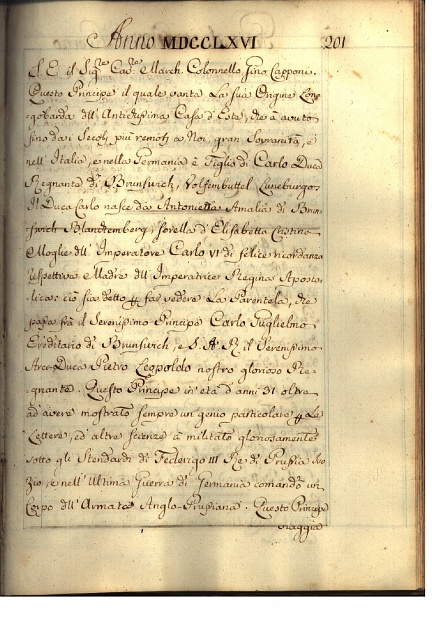 Anno MDCCLXVI 201
S. E. il Sig.re Cav.re March. Colonnello Gino Capponi.
Questo Principe il quale vanta La sua Origine Lon-
gobarda dll' Antichissina Casa d'Este, che à avuto
fino da' Secoli più remoti a Noi, gran Sovranità, e
nell' Italia, e nella Germania è Figlio di Carlo Duca
Regnante di Brunswich, Volfembuttel Luneburgo.
Il Duca Carlo nasce da Antonietta Amalia di Brun-
swich Blanchemberg, sorella d'Elisabetta Cristina
Moglie dll' Imperatore Carlo VI di felice ricordanza
respettiva Madre dll Imperatrice Regina Aposto-
lica: ciò sia detto p far vedere La Parentela, che
passa frà il Serenissimo Principe Carlo Guglielmo
Ereditario di Brunswich, e S. A. R. il Serenissimo
Arci-Duca Pietro Leopoldo nostro glorioso Re-
gnante. Questo Principe in età d'anni 31 oltre
ad avere mostrato sempre un genio particolare p Le
Lettere, ed altre scienze à militato gloriosamente
sotto gli Stendardi di Federigo III Rè di Prussia suo
Zio, e nell' Ultima Guerra di Germania comandò un
Corpo dll' Armata Anglo-Prussiana. Questo Principe
viaggia